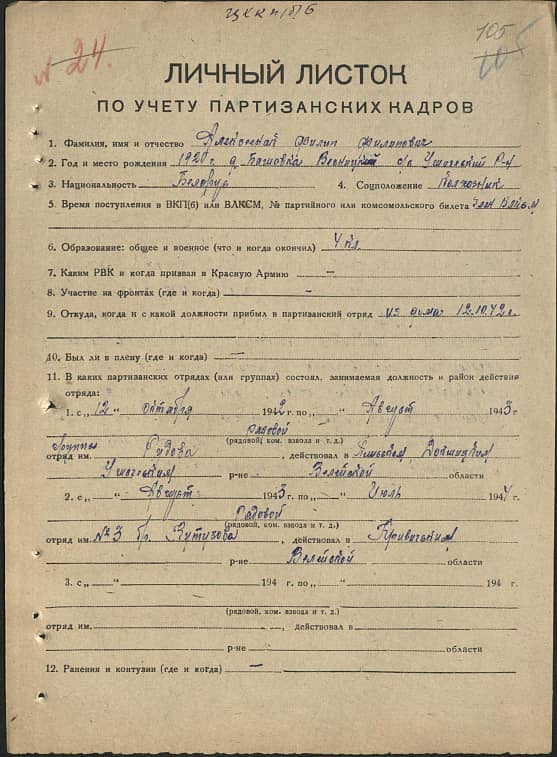 ЦККП(б)Б
№ 24.
105
ЛИЧНЫЙ ЛИСТОК
ПО УЧЕТУ ПАРТИЗАНСКИХ КАДРОВ
1. Фамилия, имя и отчество Филип Филипович
2. Год и место рождения 1920 г. д. с/с Ушачский р-н
3. Национальность Белорус 4. Соцположение Колхозник
5. Время поступления в ВКП(б) или ВЛКСМ, № партийного или комсомольского билета член ВЛКСМ
6. Образование: общее и военное (что и когда окончил) 4 кл.
7. Каким РВК и когда призван в Красную Армию —
8. Участие на фронтах (где и когда) —
9. Откуда, когда и с какой должности прибыл в партизанский отряд из дома 12.10.42 г.
10. Был ли в плену (где и когда) —
11. В каких партизанских отрядах (или группах) состоял, занимаемая должность и район действия
отряда:
1. с „ 12 “ октября 1942 г. по „ “ Август 1943 г.
рядовой
(рядовой, ком. взвода и т. д.)
группы
отряд им. , действовал в
Ушачским р-не Вилейской области
2. с „ “ Август 1943 г. по „ “ Июль 1944 г.
Рядовой
(рядовой, ком. взвода и т. д.)
отряд им. № 3 бр. Кутузова , действовал в Кривичским
р-не Вилейской области
3. с „ “ 194 г. по „ “ 194 г.
(рядовой, ком. взвода и т. д.)
отряд им. , действовал в
р-не области
12. Ранения и контузии (где и когда) —